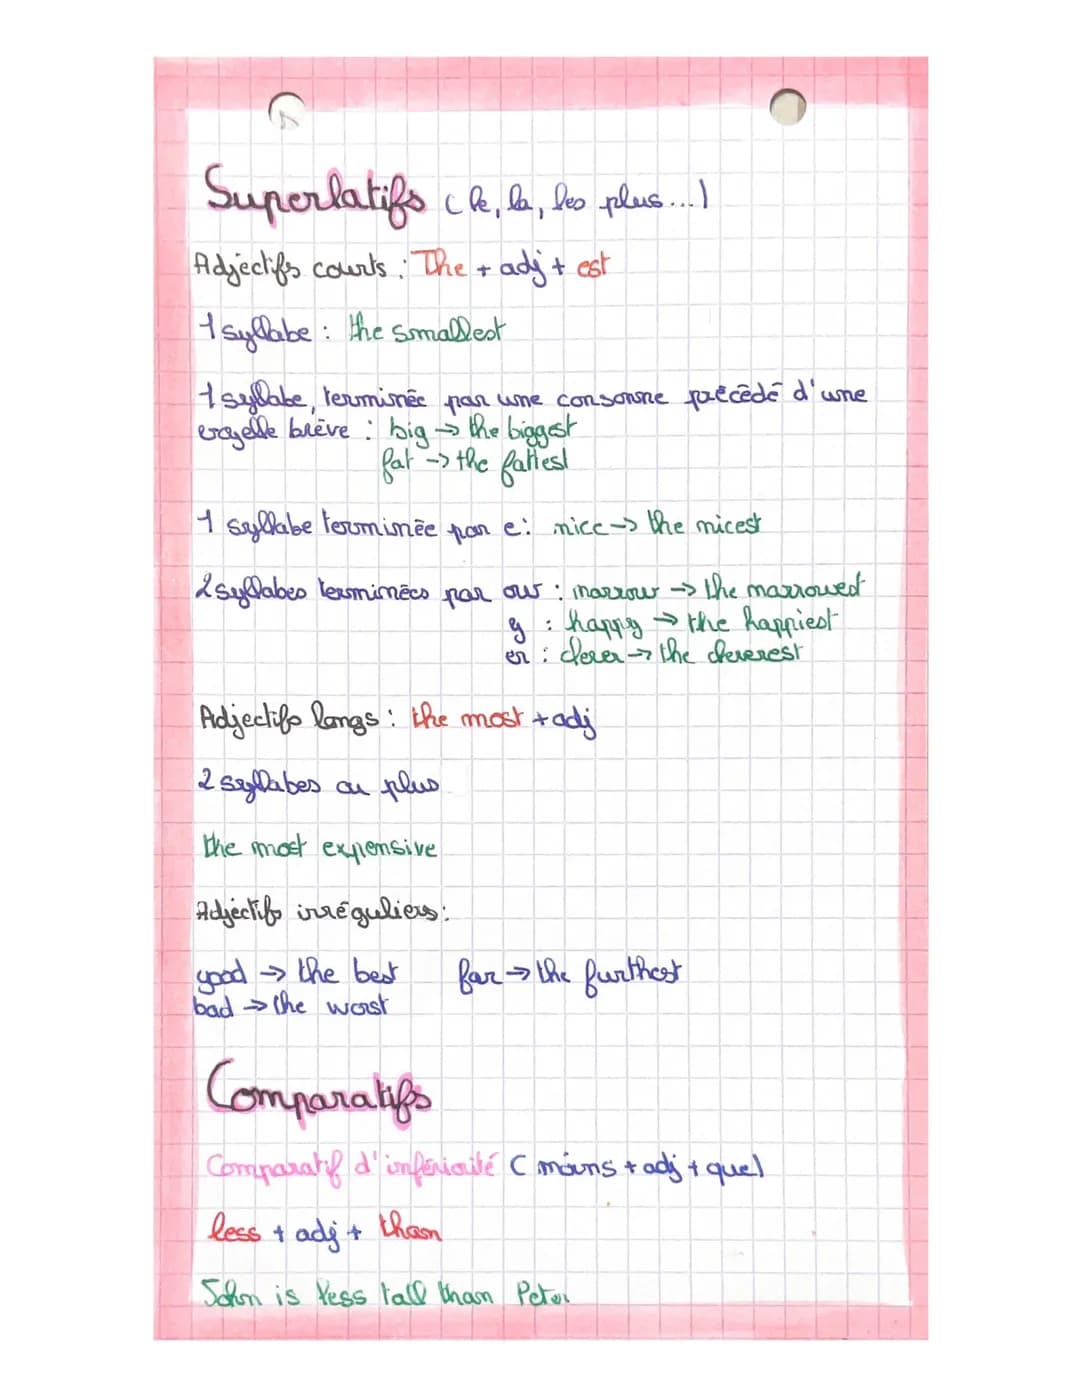 Superlatifs (le, la, les plus...)
Adjectifs courts : The + adj + est
1 syllabe : the smallest
1 syllabe, terminée par une consonne précédé d'une
voyelle brève : big → the biggest
fat → the fattest
1 syllabe terminée par e : nice → the nicest
2 syllabes terminées par ow : narrow → the narrowest
y : happy → the happiest
er : clever → the cleverest
Adjectifs longs : the most + adj
2 syllabes ou plus
the most expensive
Adjectifs irréguliers :
good → the best far → the furthest
bad → the worst
Comparatifs
Comparatif d'infériorité (moins + adj + que)
less + adj + than
John is less tall than Peter